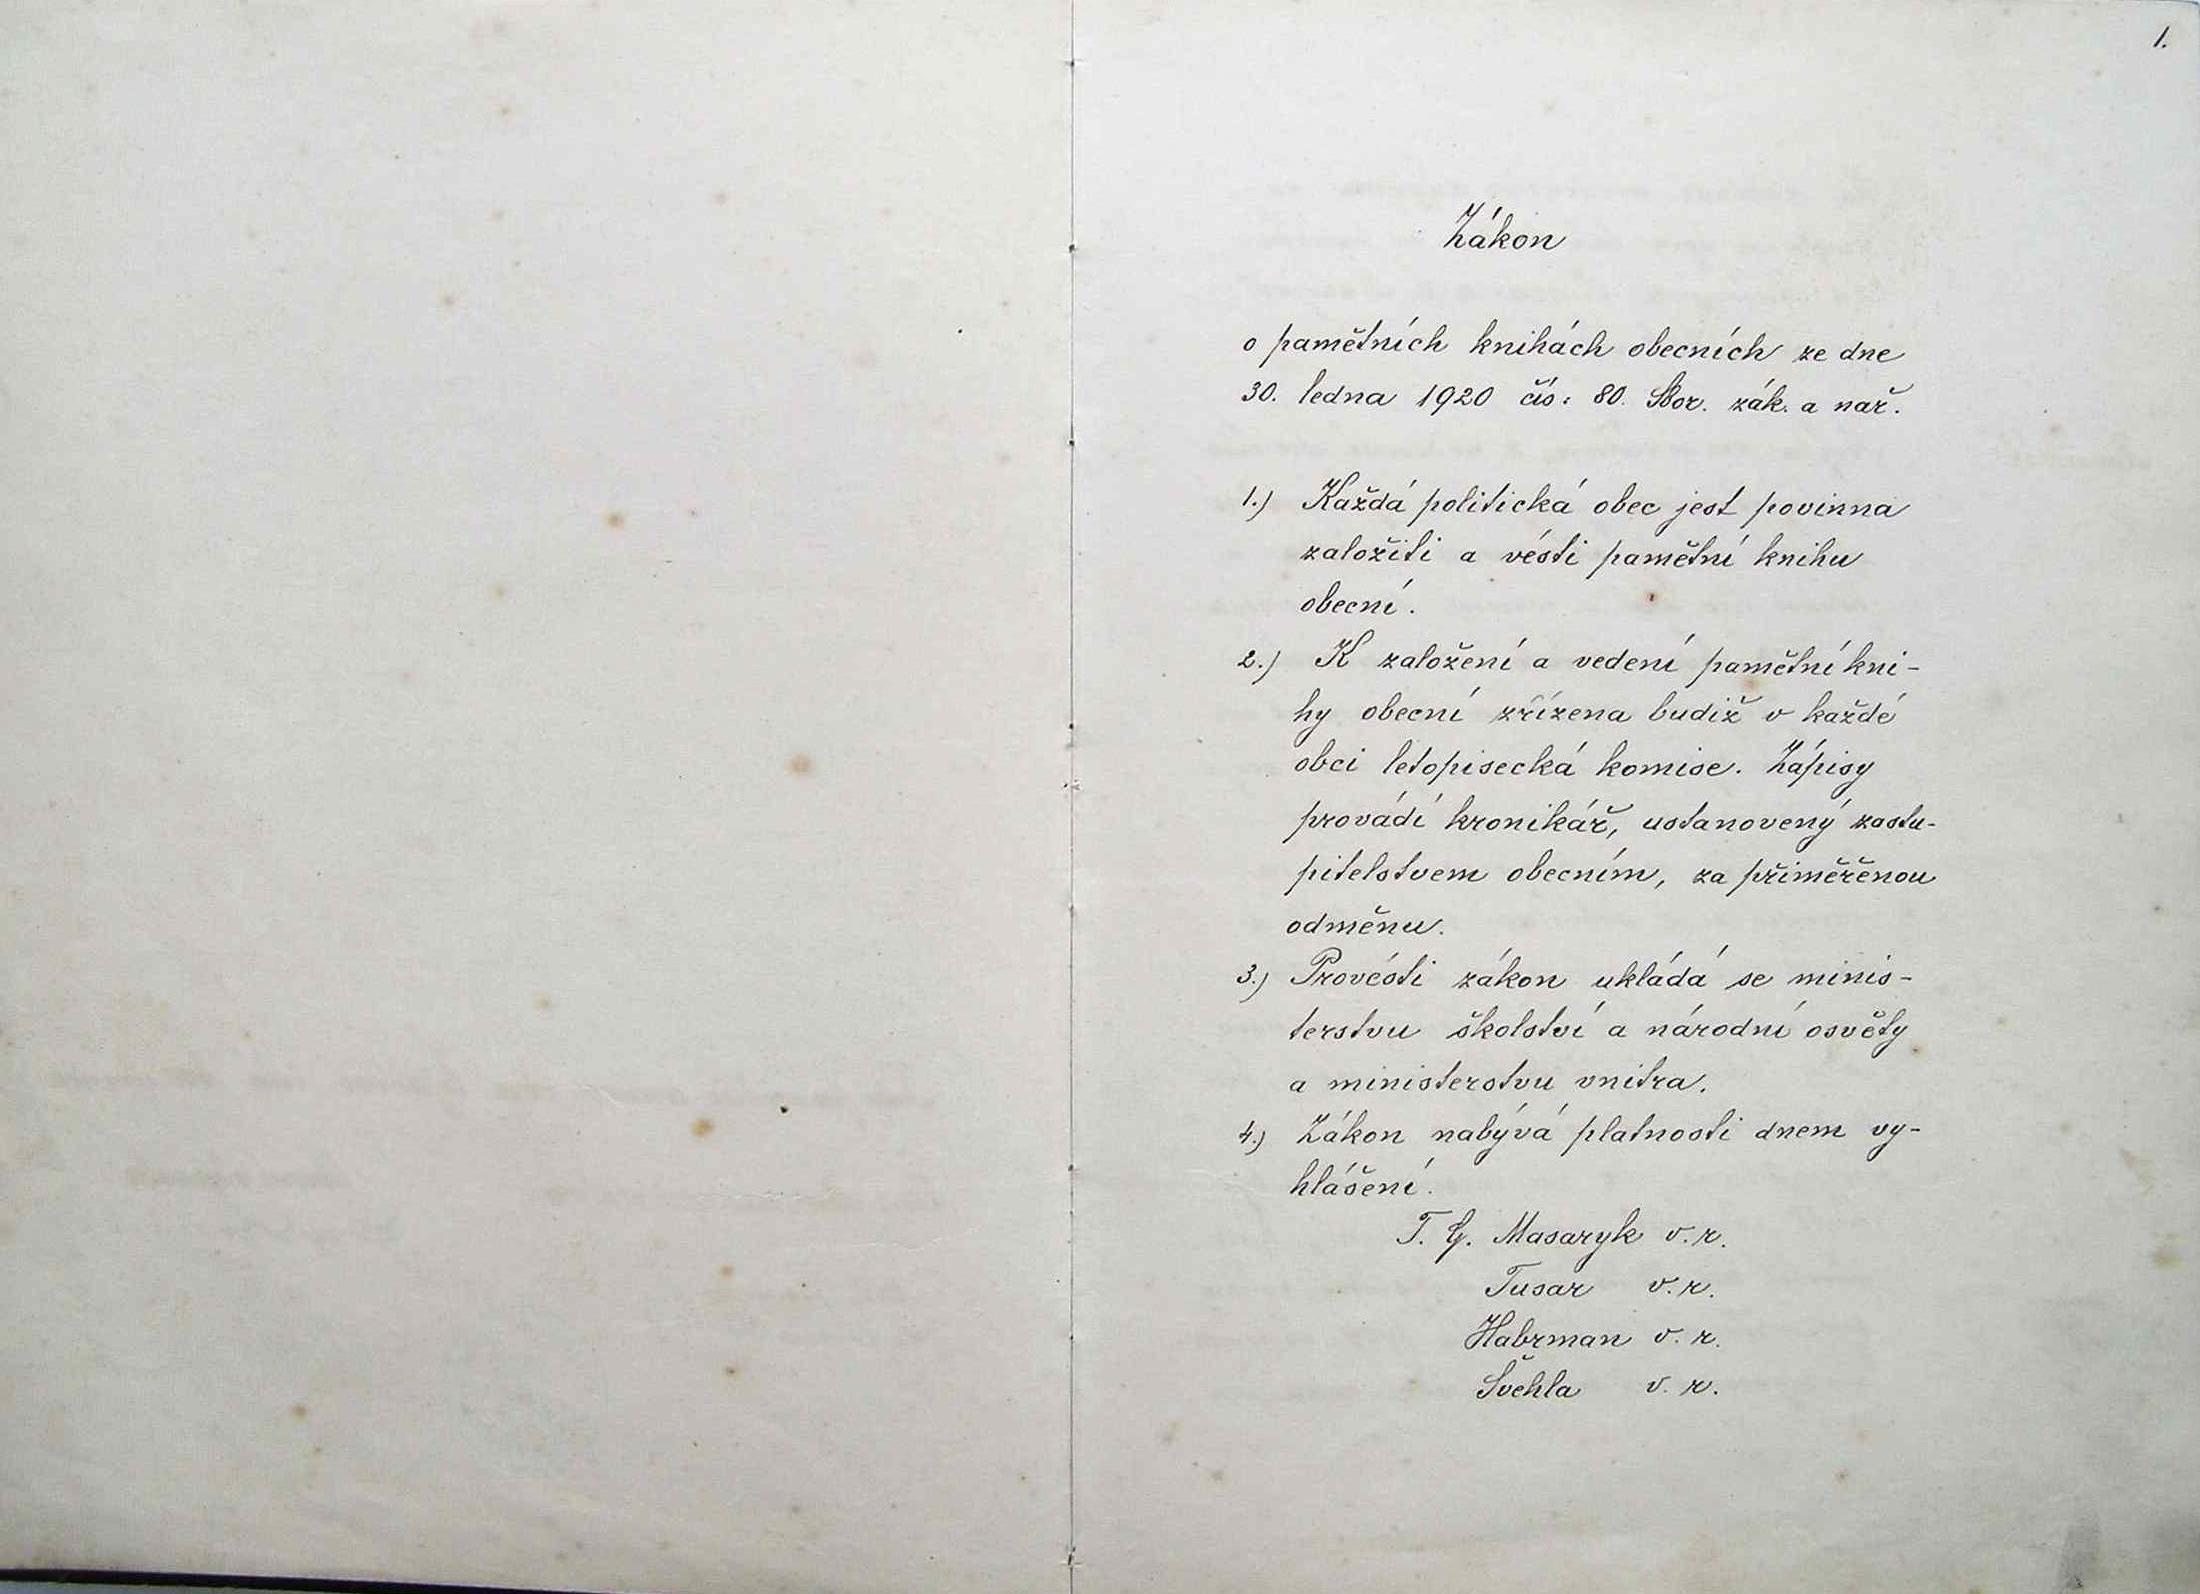 1.
Zákon
o pamětních knihách obecních ze dne
30. ledna 1920 čís. 80. Sbor. zák. a nař.
1.) Každá politická obec jest povinna
založiti a vésti pamětní knihu
obecní.
2.) K založení a vedení pamětní kni-
hy obecní zřízena budiž v každé
obci letopisecká komise. Zápisy
provádí kronikář, ustanovený zastu-
pitelstvem obecním, za přiměřenou
odměnu.
3.) Provésti zákon ukládá se minis-
terstvu školství a národní osvěty
a ministerstvu vnitra.
4.) Zákon nabývá platnosti dnem vy-
hlášení.
T. G. Masaryk v. r.
Tusar v. r.
Habrman v. r.
Švehla v. r.